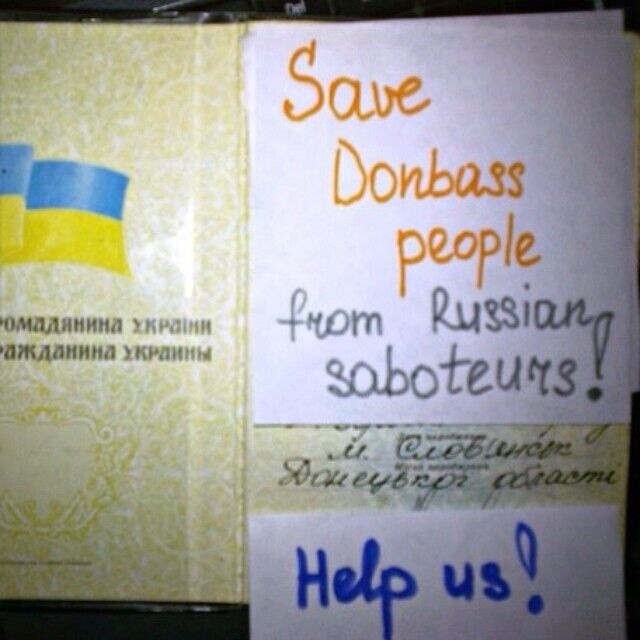 РОМАДЯНИНА УКРАЇНИ
РАЖДАНИНА УКРАИНЫ
Save
Donbass
people
from Russian
saboteurs!
м Слов'янськ
Донецької області
Help us!